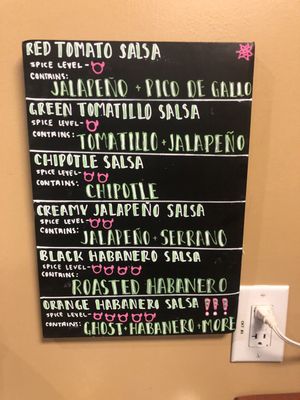 RED TOMATO SALSA
SPICE LEVEL-
CONTAINS:
JALAPEÑO + PICO DE GALLO
GREEN TOMATILLO SALSA
SPICE LEVEL-
CONTAINS:
TOMATILLO + JALAPEÑO
CHIPOTLE SALSA
SPICE LEVEL-
CONTAINS:
CHIPOTLE
CREAMY JALAPEÑO SALSA
SPICE LEVEL-
CONTAINS:
JALAPEÑO + SERRANO
BLACK HABANERO SALSA
SPICE LEVEL-
CONTAINS:
ROASTED HABANERO
ORANGE HABANERO SALSA !!!
SPICE LEVEL-
CONTAINS:
GHOST + HABANERO + MORE